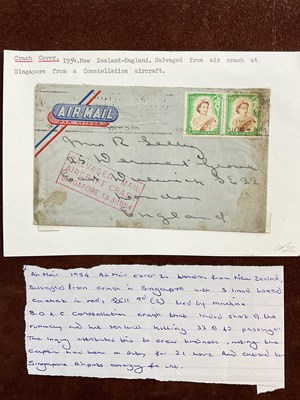 Crash Cover. 1954. New Zealand-England. Salvaged from air crash at
Singapore from a Constellation aircraft.
AIR MAIL
PAR AVION
Mrs R
Derwent Grove
East Dulwich SE 22
London
England
SALVAGED MAIL
AIRCRAFT CRASH
SINGAPORE 13.3.1954
Air Mail 1954 Air Mail cover to London from New Zealand
Salvaged from crash in Singapore with 3 lined boxed
cachet in red, QEII 9d (2) tied by machine
B.O.A.C Constellation crash that landed short of the
runway and hit sea wall killing 33 of 40 passengers.
The inquiry attributed this to crew tiredness, noting the
Captain had been on duty for 21 hours. And criticised by
Singapore Airports emergency unit.